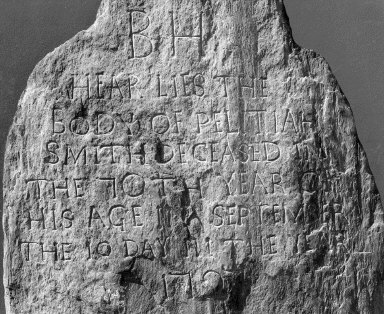 B H
HEAR LIES THE
BODY OF PELITIAH
SMITH DECEASED IN
THE 70TH YEAR OF
HIS AGE SEPTEMBER
THE 10 DAY IN THE YEAR